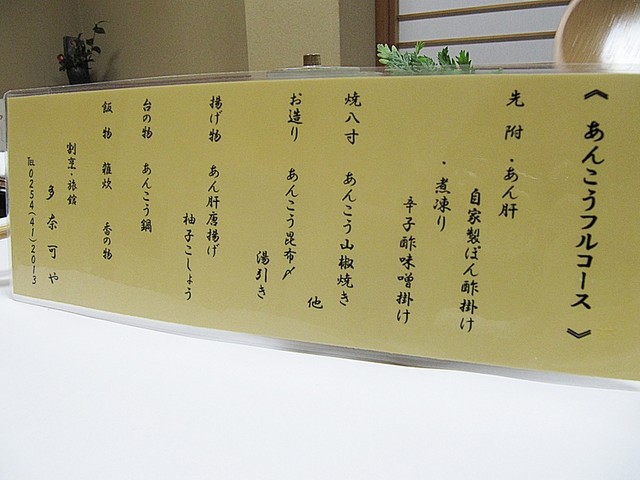 《 あんこうフルコース 》
先附 ・あん肝
自家製ぽん酢掛け
・煮凍り
辛子酢味噌掛け
焼八寸 あんこう山椒焼き
他
お造り あんこう昆布〆
湯引き
揚げ物 あん肝唐揚げ
柚子こしょう
台の物 あんこう鍋
飯物 雑炊 香の物
割烹・旅館
多奈可や
TEL 0254(41)2013